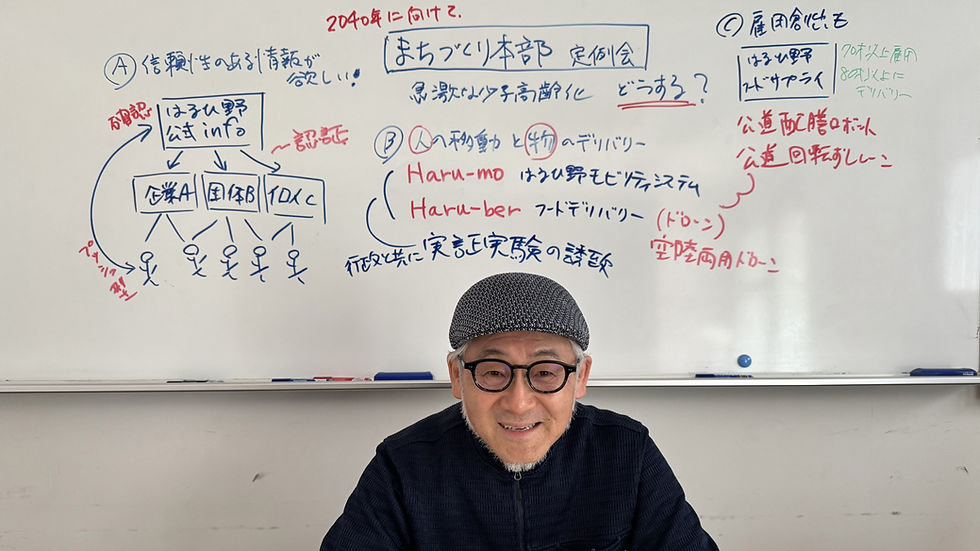 2040年に向けて、
まちづくり本部 定例会
急激な少子高齢化 どうする？
Ⓐ 信頼性のある情報が
欲しい！
確認
はるひ野
公式 info
〜認証
企業A
団体B
クロイC
プッシュ
型
Ⓑ 人の移動と物のデリバリー
Haru-mo はるひ野モビリティシステム
Haru-ber フードデリバリー
行政と共に実証実験の誘致
Ⓒ 雇用創出も
はるひ野
フードサプライ
70才以上雇用
80才以上に
デリバリー
公道配膳ロボット
公道回転すしレーン
(ドローン)
空陸両用ドローン